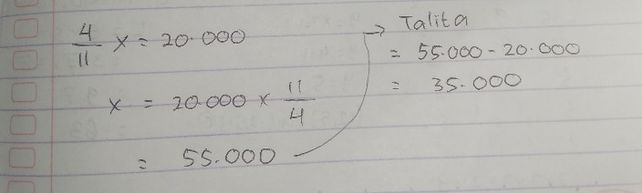 4/11 x = 20.000
x = 20.000 x 11/4
= 55.000
→ Talita
= 55.000 - 20.000
= 35.000